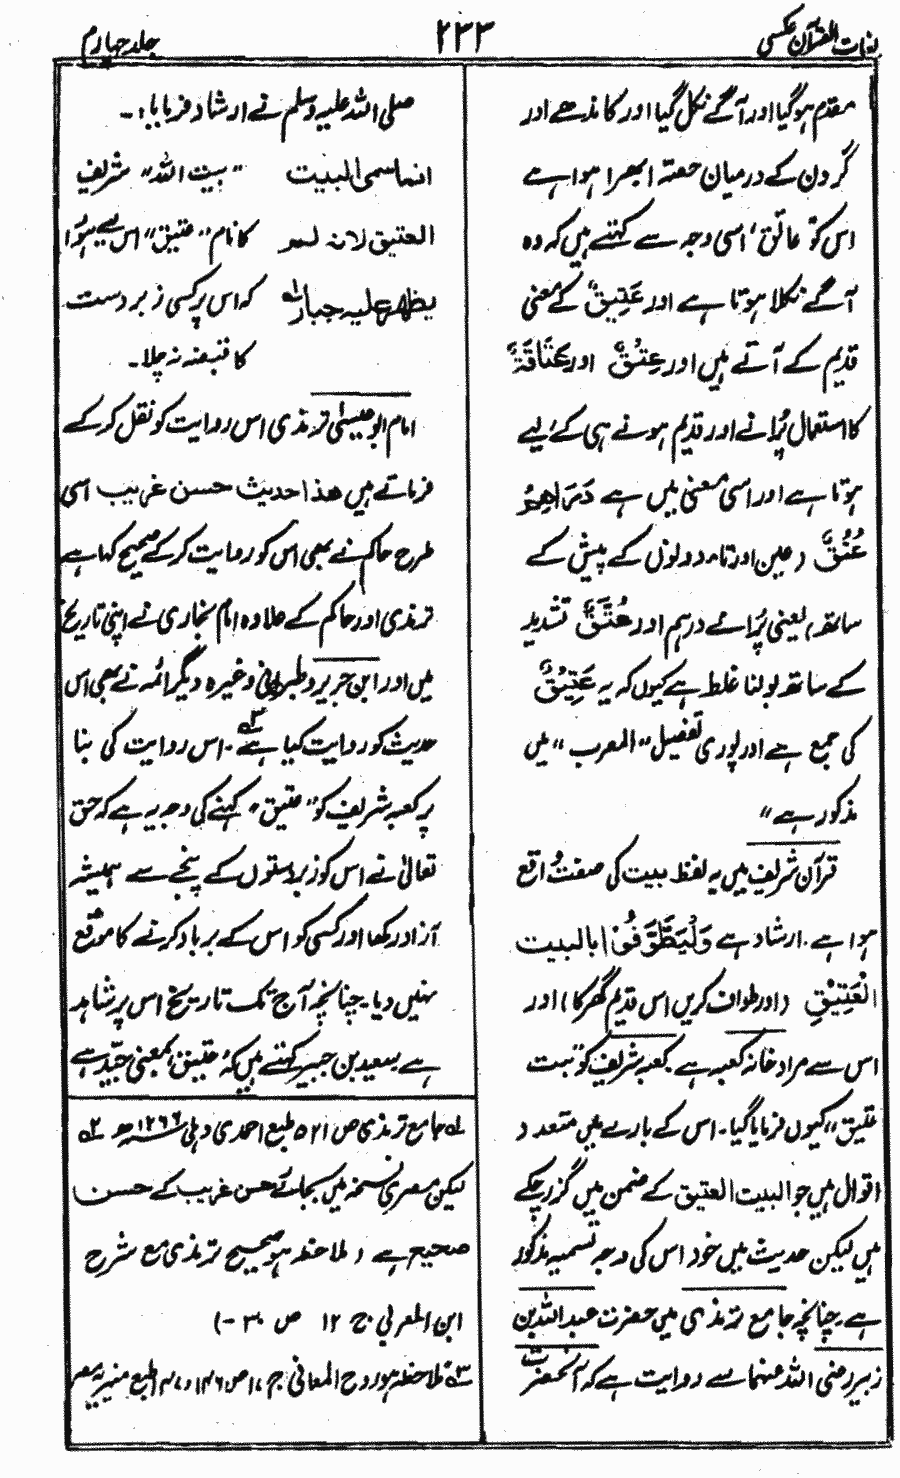 لغات القرآن عکسی
۲۳۳
جلد چہارم
مقدم ہو گیا اور آگے نکل گیا اور کاندھے اور
گردن کے درمیان حصّہ ابھرا ہوا ہے
اس کو عاتق، اسی وجہ سے کہتے ہیں کہ وہ
آگے نکلا ہوتا ہے اور عَتِیقٌ کے معنی
قدیم کے آتے ہیں اور عِتْقٌ اور عَتَاقَۃٌ
کا استعمال پُرانے اور قدیم ہونے ہی کے لیے
ہوتا ہے اور اسی معنی میں ہے دَرَاھِمُ
عُتُقٌ (عین اور تاء دونوں کے پیش کے
ساتھ، یعنی پُرانے درہم اور عُتَّقٌ تشدید
کے ساتھ بولنا غلط ہے کیوں کہ یہ عَتِیْقٌ
کی جمع ہے اور پوری تفصیل "المعرب" میں
مذکور ہے"
قرآن شریف میں یہ لفظ بیت کی صفت واقع
ہوا ہے، ارشاد ہے وَلْیَطَّوَّفُوْا بالبیت
الْعَتِیْقِ (اور طواف کریں اس قدیم گھر کا) اور
اس سے مراد خانہ کعبہ ہے۔ کعبہ شریف کو "بیت
عتیق" کیوں فرمایا گیا۔ اس کے بارے میں متعدد
اقوال ہیں جو البیت العتیق کے ضمن میں گزر چکے
ہیں لیکن حدیث میں خود اس کی وجہ تسمیہ مذکور
ہے۔ چنانچہ جامع ترمذی میں حضرت عبداللہ بن
زبیر رضی اللہ عنہما سے روایت ہے کہ آنحضرت
صلی اللہ علیہ وسلم نے ارشاد فرمایا:۔
انما سمی البیت "بیت اللہ" شریف
العتیق لانہ لم کا نام "عتیق" اس لیے ہوا
یظھر علیہ جبار لہ کہ اس پر کسی زبردست
کا قبضہ نہ چلا۔
امام ابو عیسیٰ ترمذی اس روایت کو نقل کر کے
فرماتے ہیں ھذا حدیث حسن غریب اسی
طرح حاکم نے بھی اس کو روایت کر کے صحیح کہا ہے
ترمذی اور حاکم کے علاوہ امام بخاری نے اپنی تاریخ
میں اور ابن جریر و طبرانی وغیرہ دیگر ائمہ نے بھی اس
حدیث کو روایت کیا ہے ۳۔ اس روایت کی بنا
پر کعبہ شریف کو "عتیق" کہنے کی وجہ یہ ہے کہ حق
تعالیٰ نے اس کو زبردستوں کے پنجے سے ہمیشہ
آزاد رکھا اور کسی کو اس کے برباد کرنے کا موقع
نہیں دیا۔ چنانچہ آج تک تاریخ اس پر شاہد
ہے۔ سعید بن جبیر کہتے ہیں کہ عتیق بمعنی جیّد ہے
لہ جامع ترمذی ص ۵۲۱ طبع احمدی دہلی ۱۲۶۶ھ ۲ہ
لیکن مصری نسخہ میں بجائے حسن غریب کے حسن
صحیح ہے (ملاحظہ ہو صحیح ترمذی مع شرح
ابن العربی ج ۱۲ ص ۳۰ ۔)
۳ہ ملاحظہ ہو روح المعانی ج ۱۷ ص ۱۴۶ و ۱۴۷ طبع منیریہ مصر